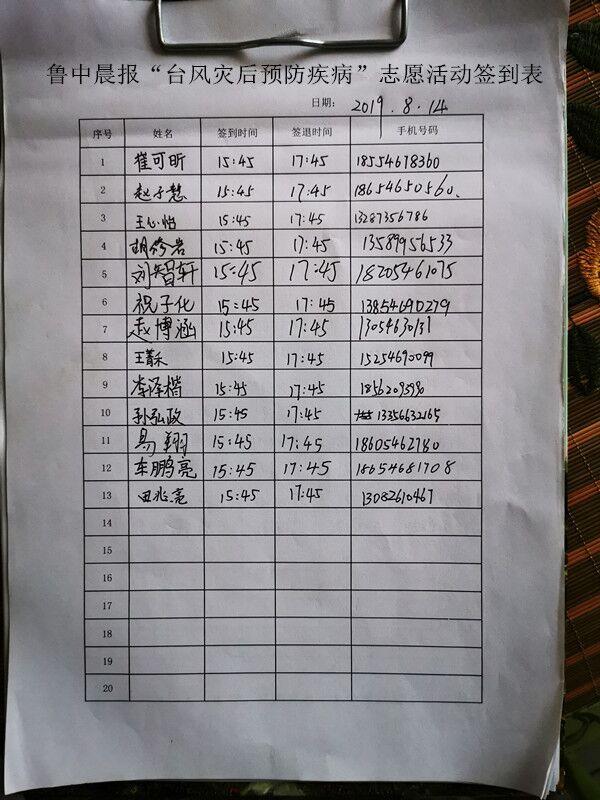 鲁中晨报“台风灾后预防疾病”志愿活动签到表
日期： 2019.8.14
序号 姓名 签到时间 签退时间 手机号码
1 崔可昕 15:45 17:45 18554678360
2 赵子慧 15:45 17:45 18654650560.
3 王心怡 15:45 17:45 13287356786
4 胡修岩 15:45 17:45 13589956533
5 刘智轩 15:45 17:45 18205461075
6 祝子化 15:45 17:45 13854690279
7 赵博涵 15:45 17:45
8 王菁禾 15:45 17:45 15254690099
9 李泽楷 15:45 17:45
10 孙弘政 15:45 17:45 13356632165
11 易翔 15:45 17:45 18605462780
12 车鹏亮 15:45 17:45 18654681708
13 田兆亮 15:45 17:45 13082610467
14
15
16
17
18
19
20